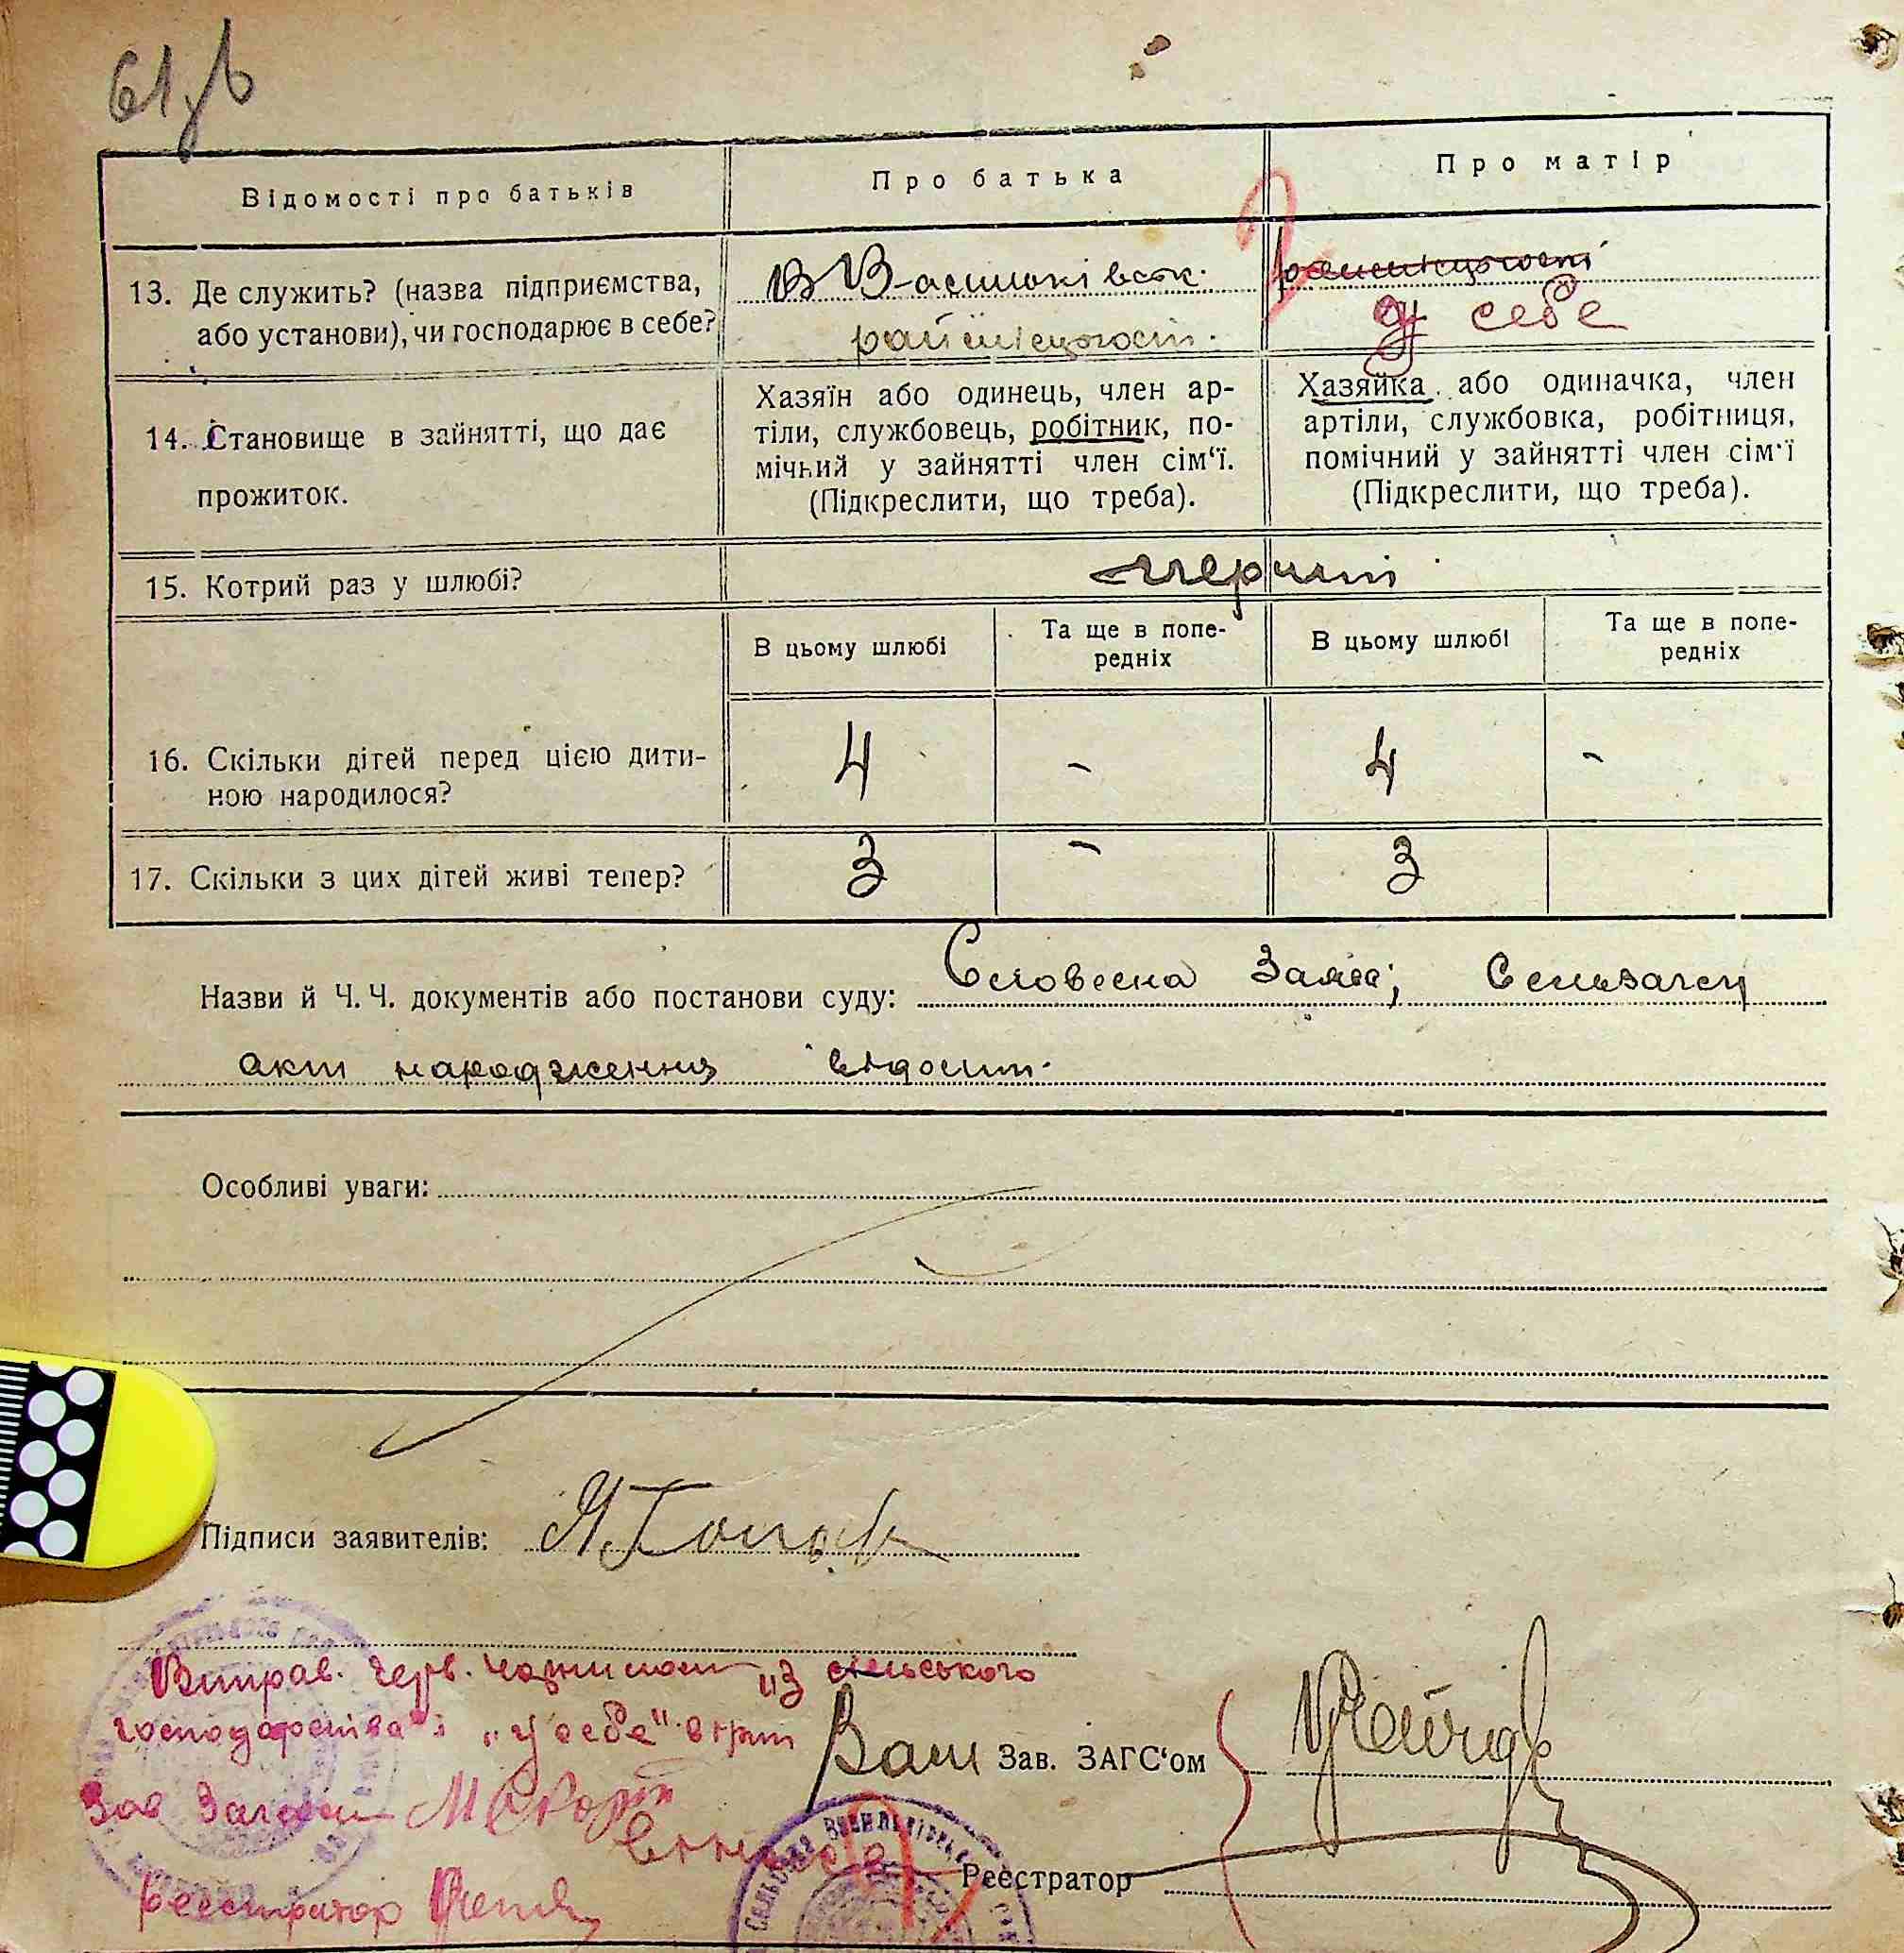 Відомості про батьків
Про батька
Про матір
13. Де служить? (назва підприємства,
або установи), чи господарює в себе?
В Васильківськ.
у себе
14. Становище в зайнятті, що дає
прожиток.
Хазяїн або одинець, член ар-
тіли, службовець, робітник, по-
мічний у зайнятті член сім‘ї.
(Підкреслити, що треба).
Хазяйка або одиначка, член
артіли, службовка, робітниця,
помічний у зайнятті член сім‘ї
(Підкреслити, що треба).
15. Котрий раз у шлюбі?
перший
В цьому шлюбі
Та ще в попе-
редніх
В цьому шлюбі
Та ще в попе-
редніх
16. Скільки дітей перед цією дити-
ною народилося?
4 - 4 -
17. Скільки з цих дітей живі тепер?
3 - 3
Назви й Ч. Ч. документів або постанови суду: Словесна Заява;
акт народження
Особливі уваги:
Підписи заявителів:
Виправ. черв. чорнилом "із сільського
господарства" і "у себе" вірити
Зав. ЗАГС‘ом
Зав Загсом
Реєстратор
Реєстратор